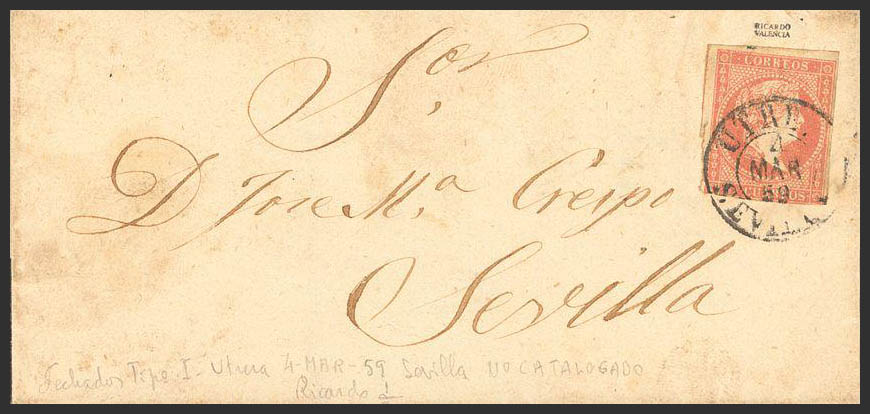 RICARDO
VALENCIA
CORREOS
Sor.
D Jose M.a Crespo
Sevilla
4
MAR
59
SEVILLA
Fechador Tipo I - Utrera 4-MAR-59 Sevilla NO CATALOGADO
Ricardo